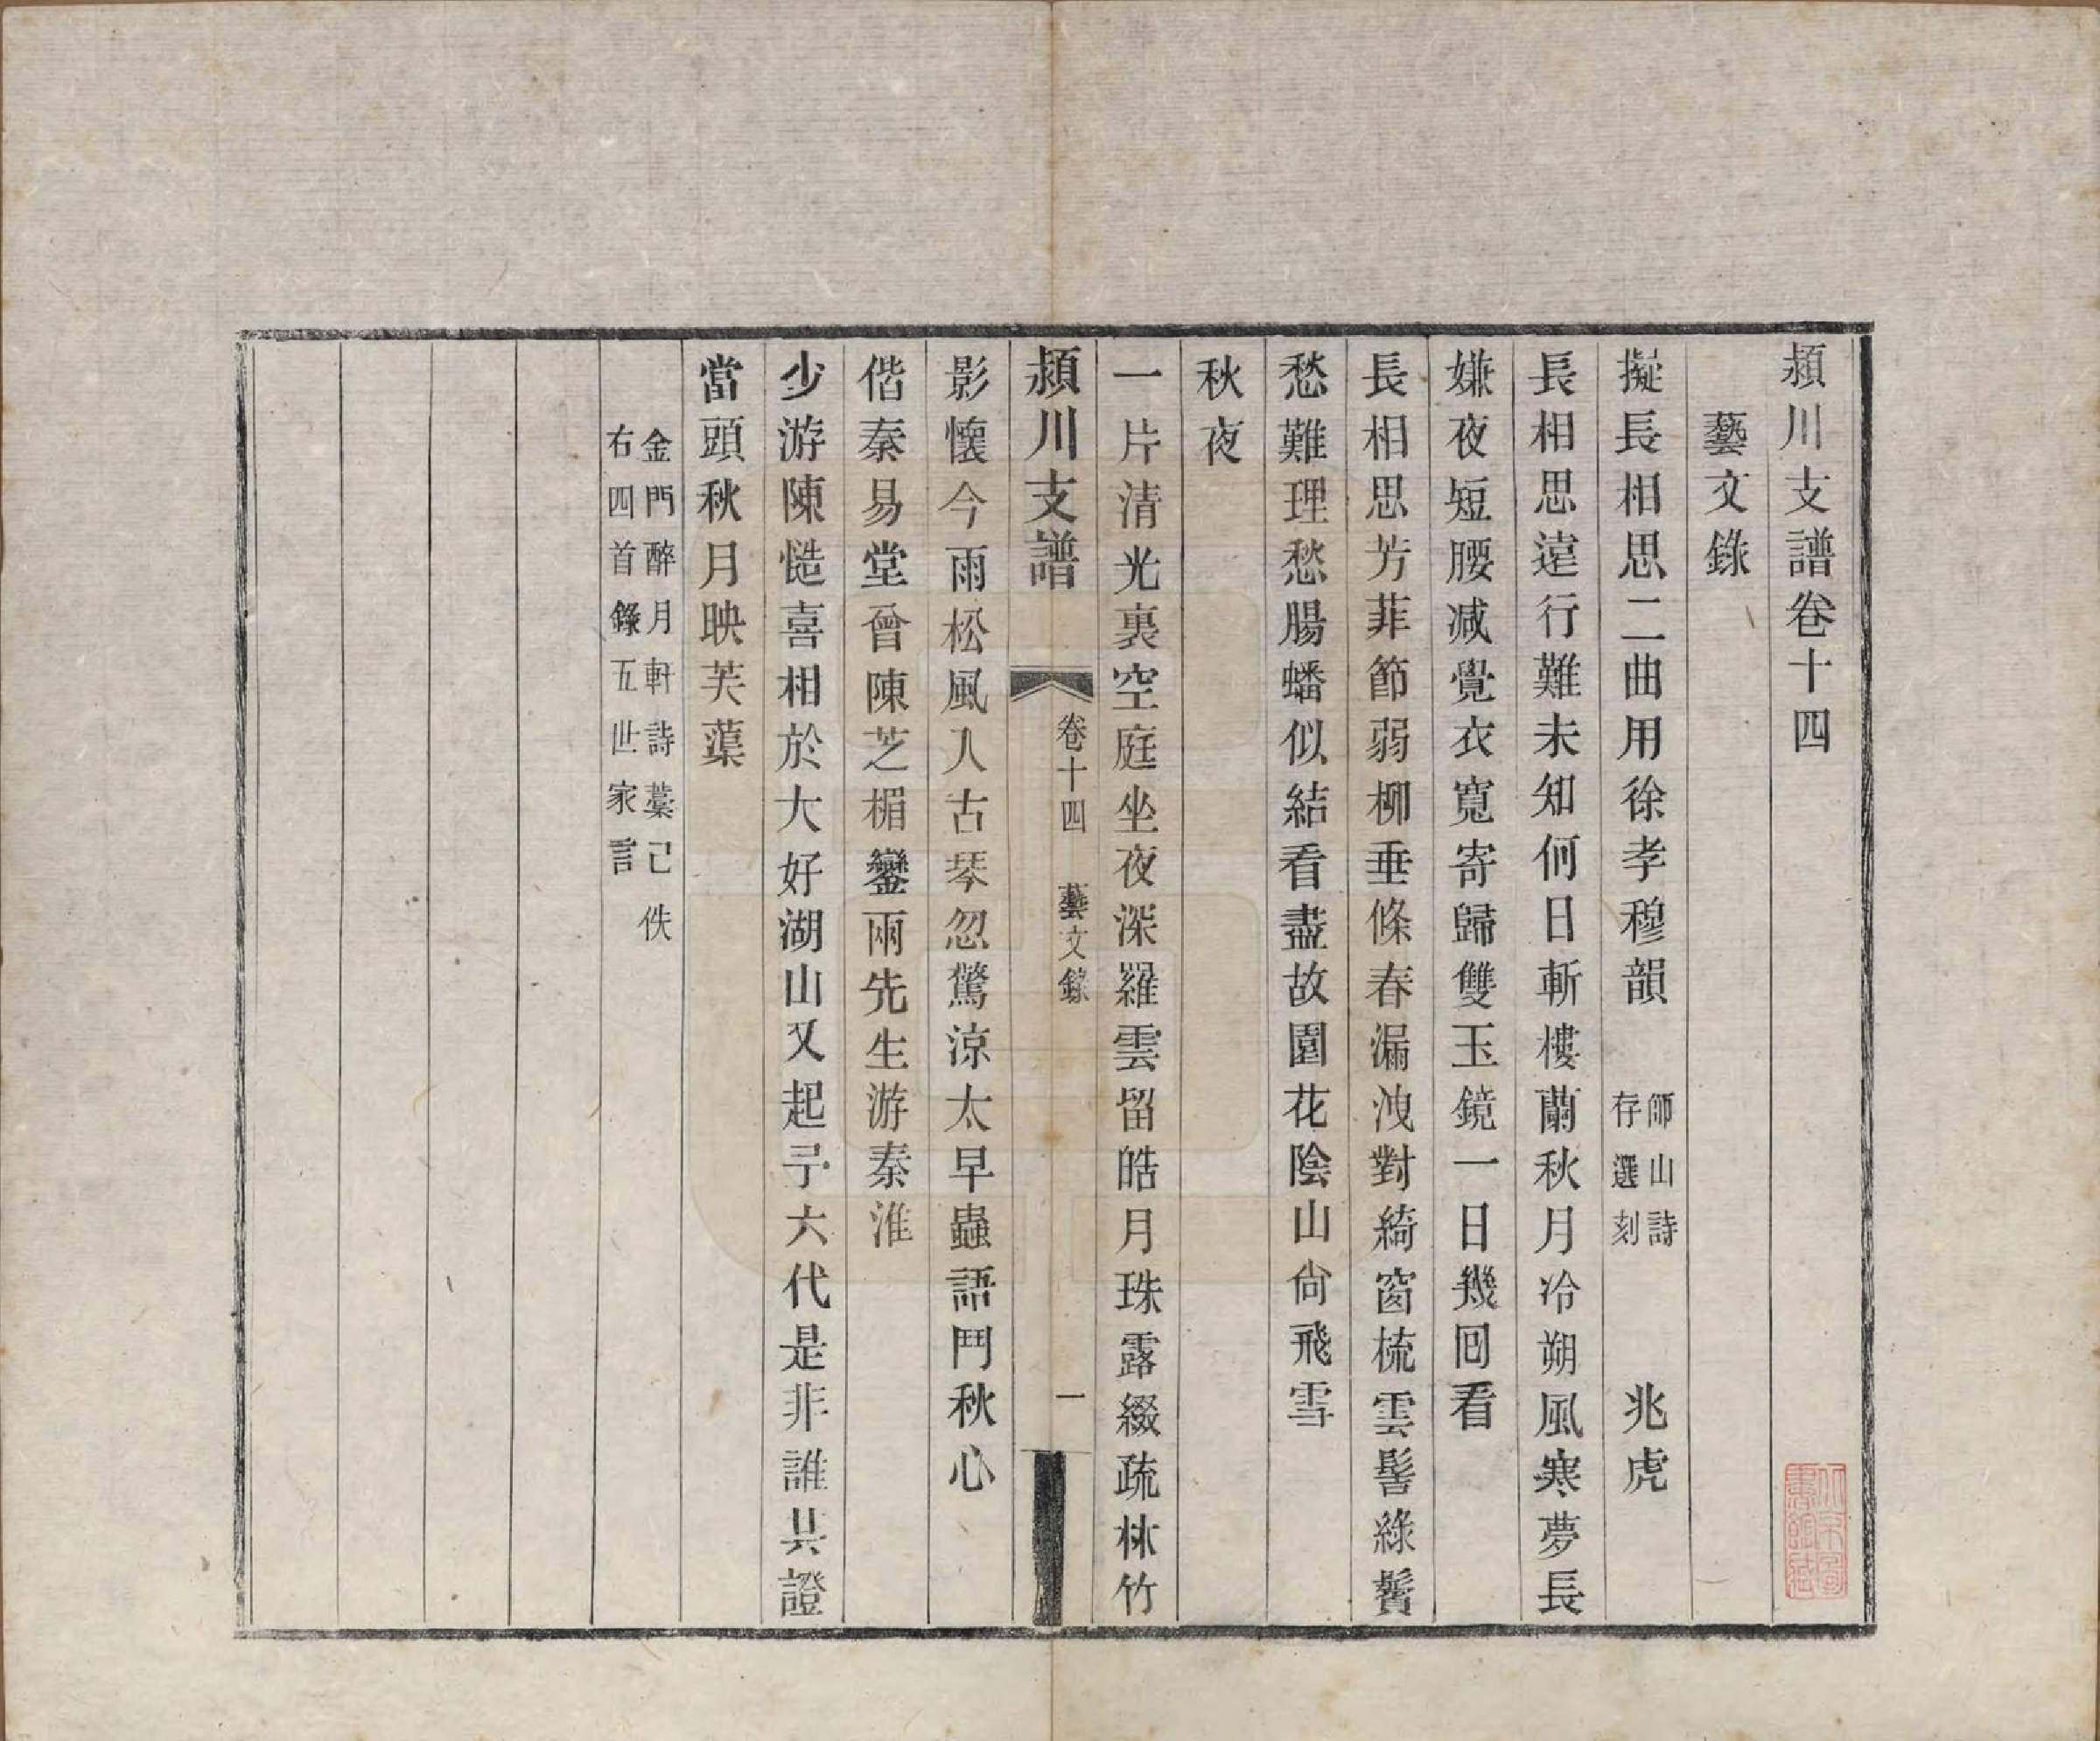 潁川支譜卷十四
藝文錄
擬長相思二曲用徐孝穆韻 師山詩存選刻 兆虎
長相思遠行難未知何日斬樓蘭秋月冷朔風寒夢長
嫌夜短腰减覺衣寬寄歸雙玉鏡一日幾囘看
長相思芳菲節弱柳垂條春漏洩對綺窗梳雲髻綠鬢
愁難理愁腸蟠似結看盡故園花陰山尙飛雪
秋夜
一片清光裏空庭坐夜深羅雲留皓月珠露綴疏林竹
潁川支譜 卷十四 藝文錄 一
影懷今雨松風入古琴忽驚涼太早蟲語鬥秋心
偕秦易堂曾陳芝楣鑾兩先生游秦淮
少游陳慥喜相於大好湖山又起予六代是非誰與證
當頭秋月映芙蕖
金門醉月軒詩藁已佚
右四首錄五世家言